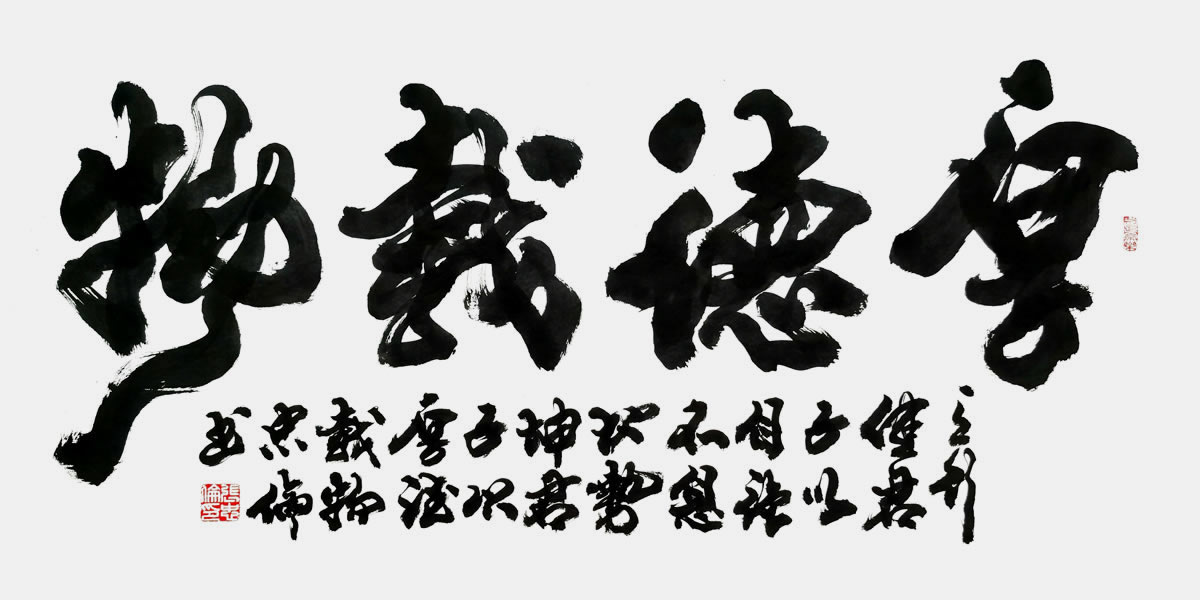 厚德載物
天行
健君
子以
自強
不息
地勢
坤君
子以
厚德
載物
忠倫
書
張忠倫印